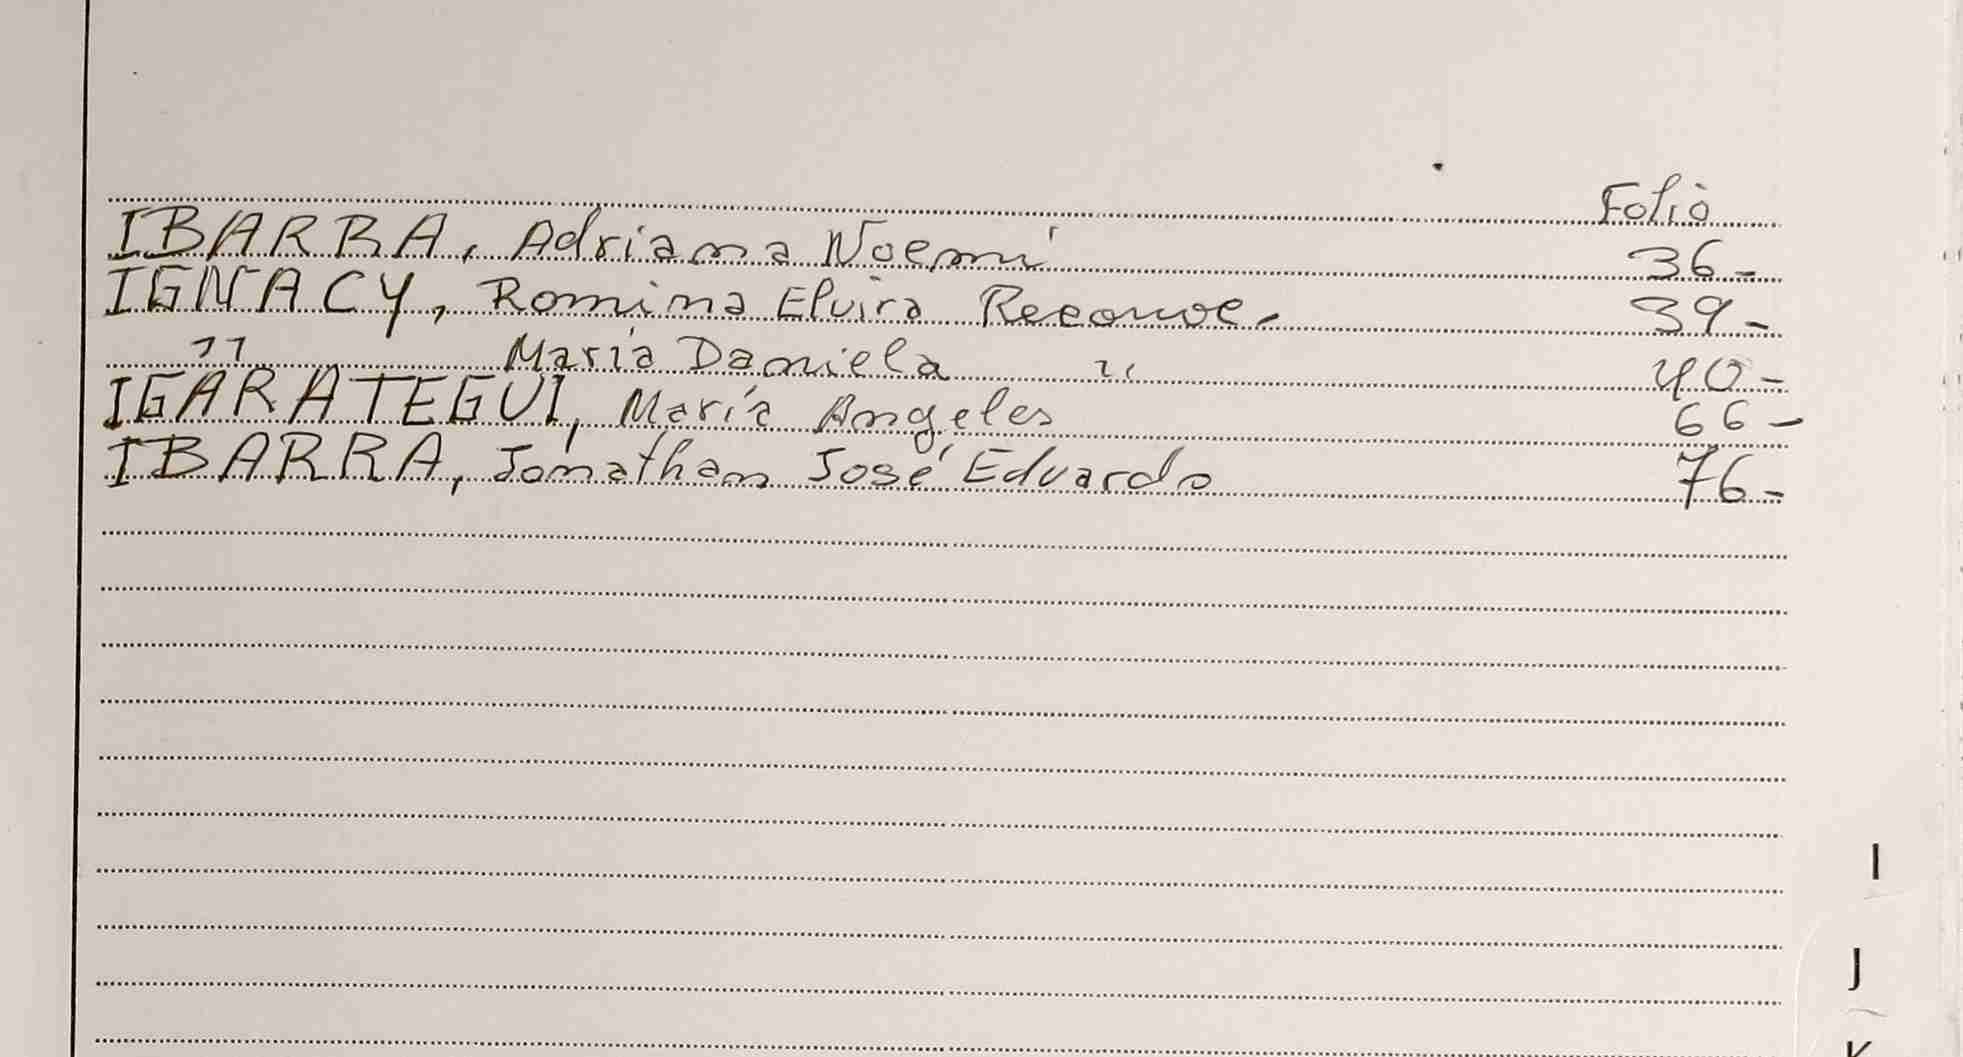 Folio
IBARRA, Adriana Noemí 36-
IGNACY, Romina Elvira 39-
" María Daniela " 40-
IGARATEGUI, María Angeles 66-
IBARRA, Jonathan José Eduardo 76-
I
J
K